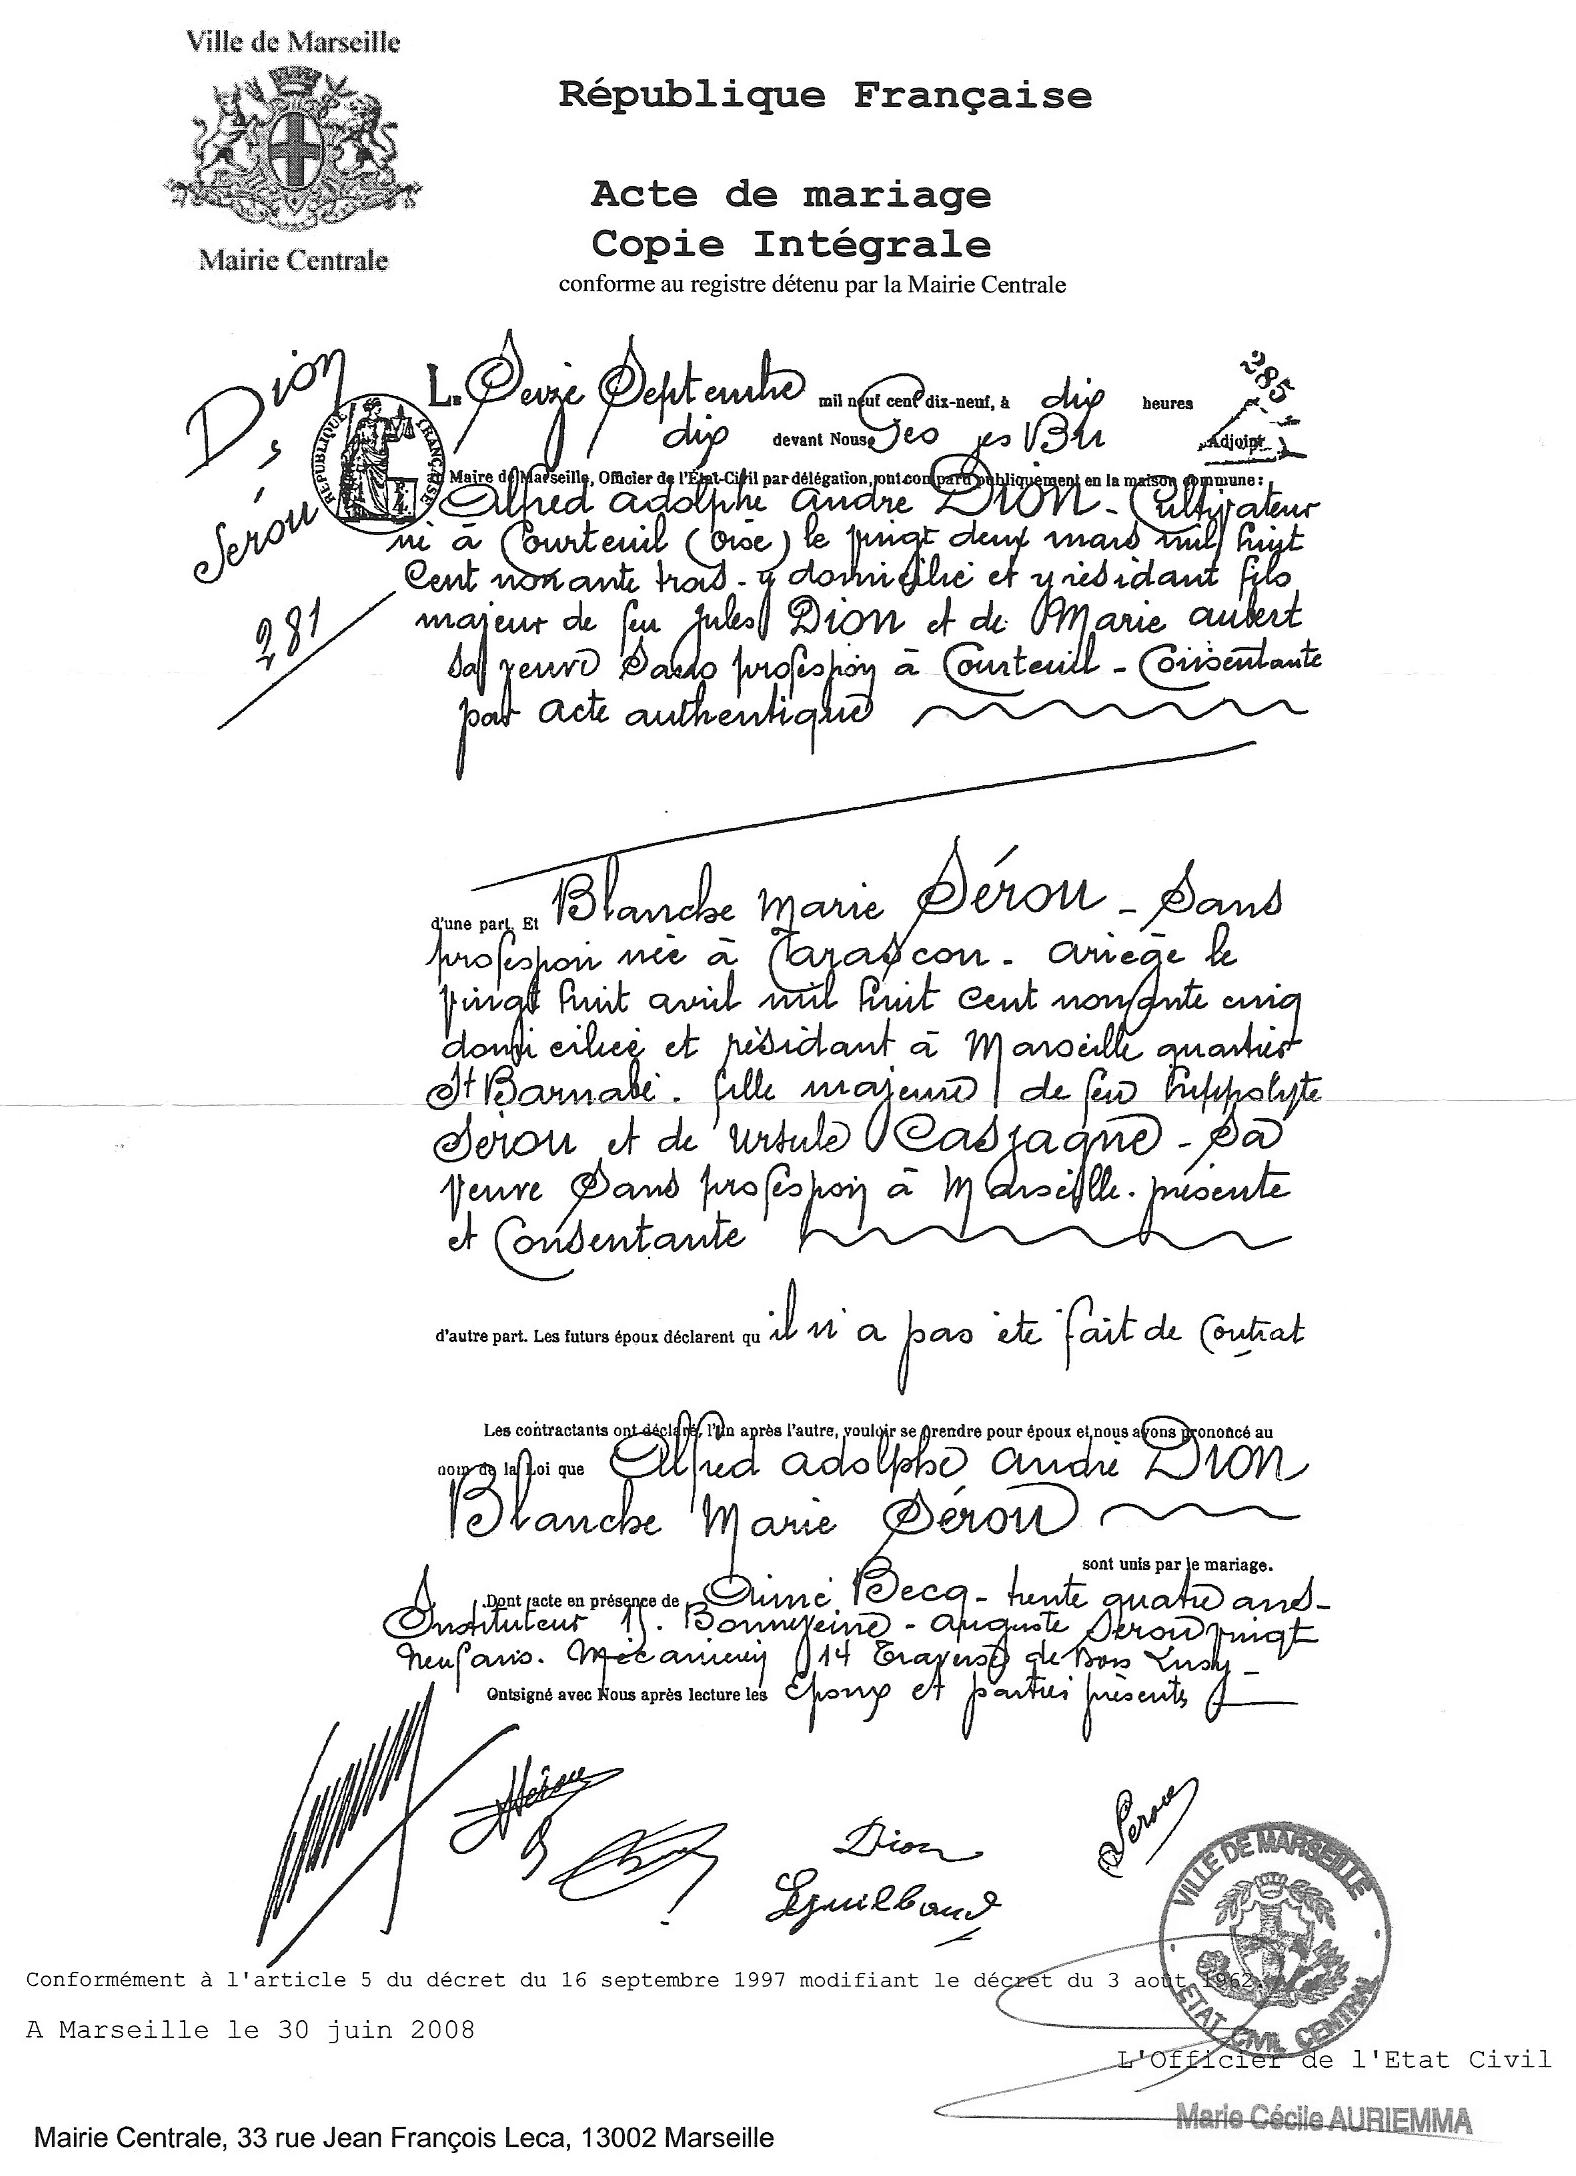 Ville de Marseille
Mairie Centrale
République Française
Acte de mariage
Copie Intégrale
conforme au registre détenu par la Mairie Centrale
Dion
&
Sérou
281
285
RÉPUBLIQUE FRANÇAISE
L. Seize Septembre mil neuf cent dix-neuf, à dix heures
dix devant Nous Adjoint
Maire de Marseille, Officier de l'État-Civil par délégation, ont comparu publiquement en la maison commune:
Alfred adolphe andré DION - Cultivateur
né à Courteuil (oise) le vingt deux mars mil huit
Cent nonante trois - y domicilié et y résidant fils
majeur de feu Jules DION et de Marie aubert
sa veuve Sans profession à Courteuil - Consentante
par acte authentique
d'une part. Et Blanche Marie Sérou - Sans
profession née à Tarascon - ariège le
vingt huit avril mil huit cent nonante cinq
domiciliée et résidant à Marseille quartier
St Barnabé. fille majeure de feu hippolyte
Sérou et de Ursule - Sa
veuve Sans profession à Marseille. présente
et Consentante
d'autre part. Les futurs époux déclarent qu il n'a pas été fait de Contrat
Les contractants ont déclaré, l'un après l'autre, vouloir se prendre pour époux et nous avons prononcé au
nom de la Loi que Alfred adolphe andré DION
Blanche Marie Sérou
sont unis par le mariage.
Dont acte en présence de Aimé Becq - trente quatre ans -
Instituteur 15. Bonneveine - auguste Serou vingt
neuf ans. Mécanicien 14 Traverse de Bois Lusy -
Ont signé avec Nous après lecture les Epoux et parties présents
Sérou
Dion
Serou
Leguilbaud
VILLE DE MARSEILLE
ETAT CIVIL CENTRAL
Conformément à l'article 5 du décret du 16 septembre 1997 modifiant le décret du 3 août 1962.
A Marseille le 30 juin 2008
L'Officier de l'Etat Civil
Marie Cécile AURIEMMA
Mairie Centrale, 33 rue Jean François Leca, 13002 Marseille